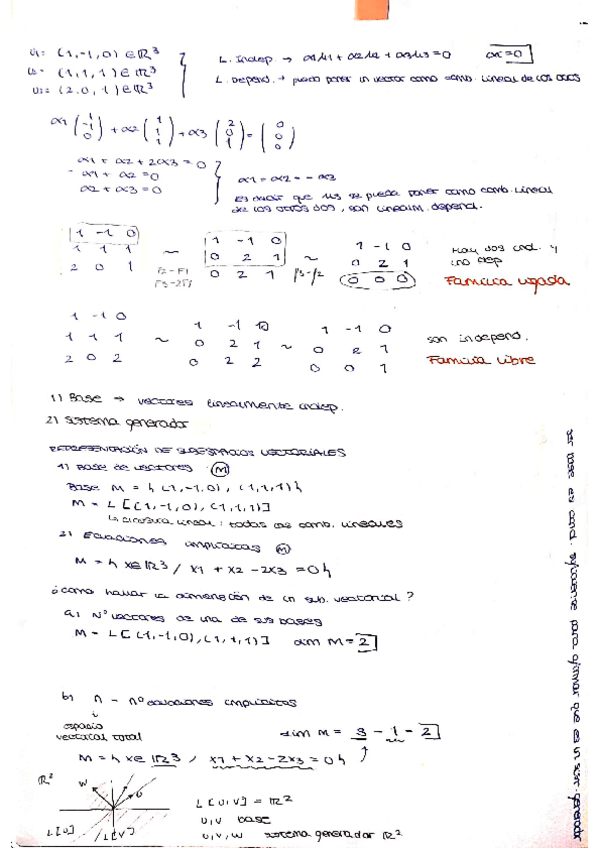 u1 = (1,-1,0) ∈ ℝ³
u2 = (1,1,1) ∈ ℝ³
u3 = (2,0,1) ∈ ℝ³
L. Indep. → α1u1 + α2u2 + α3u3 = 0 α=0
L. Depend. → puedo poner un vector como comb. lineal de los otros
α1 (1 -1 0) + α2 (1 1 1) + α3 (2 0 1) = (0 0 0)
α1 + α2 + 2α3 = 0
-α1 + α2 = 0
α2 + α3 = 0
α1 = α2 = -α3
es decir que u3 se puede poner como comb. lineal
de los otros dos, son linealm. depend.
1 -1 0
1 1 1
2 0 1
~
F2-F1
F3-2F1
1 -1 0
0 2 1
0 2 1
~
F3-F2
1 -1 0
0 2 1
0 0 0
Hay dos ind. y
uno dep
Familia ligada
1 -1 0
1 1 1
2 0 2
~
1 -1 0
0 2 1
0 2 2
~
1 -1 0
0 2 1
0 0 1
son independ.
Familia libre
1) Base → vectores linealmente indep.
2) Sistema generador
REPRESENTACIÓN DE SUBESPACIOS VECTORIALES
1) Base de vectores (M)
Base M = {(1,-1,0), (1,1,1)}
M = L[(1,-1,0), (1,1,1)]
↳ clausura lineal: todas las comb. lineales
2) Ecuaciones implícitas (M)
M = {x∈ℝ³ / x1 + x2 - 2x3 = 0}
¿Cómo hallar la dimensión de un sub. vectorial?
a) Nº vectores de una de sus bases
M = L[(1,-1,0), (1,1,1)] dim M = 2
b) n - nº ecuaciones implícitas
espacio
vectorial total
dim M = 3 - 1 = 2
M = {x∈ℝ³ / x1 + x2 - 2x3 = 0}
ℝ²
W
U
L[U]
L[V]
L[U,V] = ℝ²
U,V base
U,V,W sistema generador ℝ²
ser base es cond. suficiente para afirmar que es un sist. generador